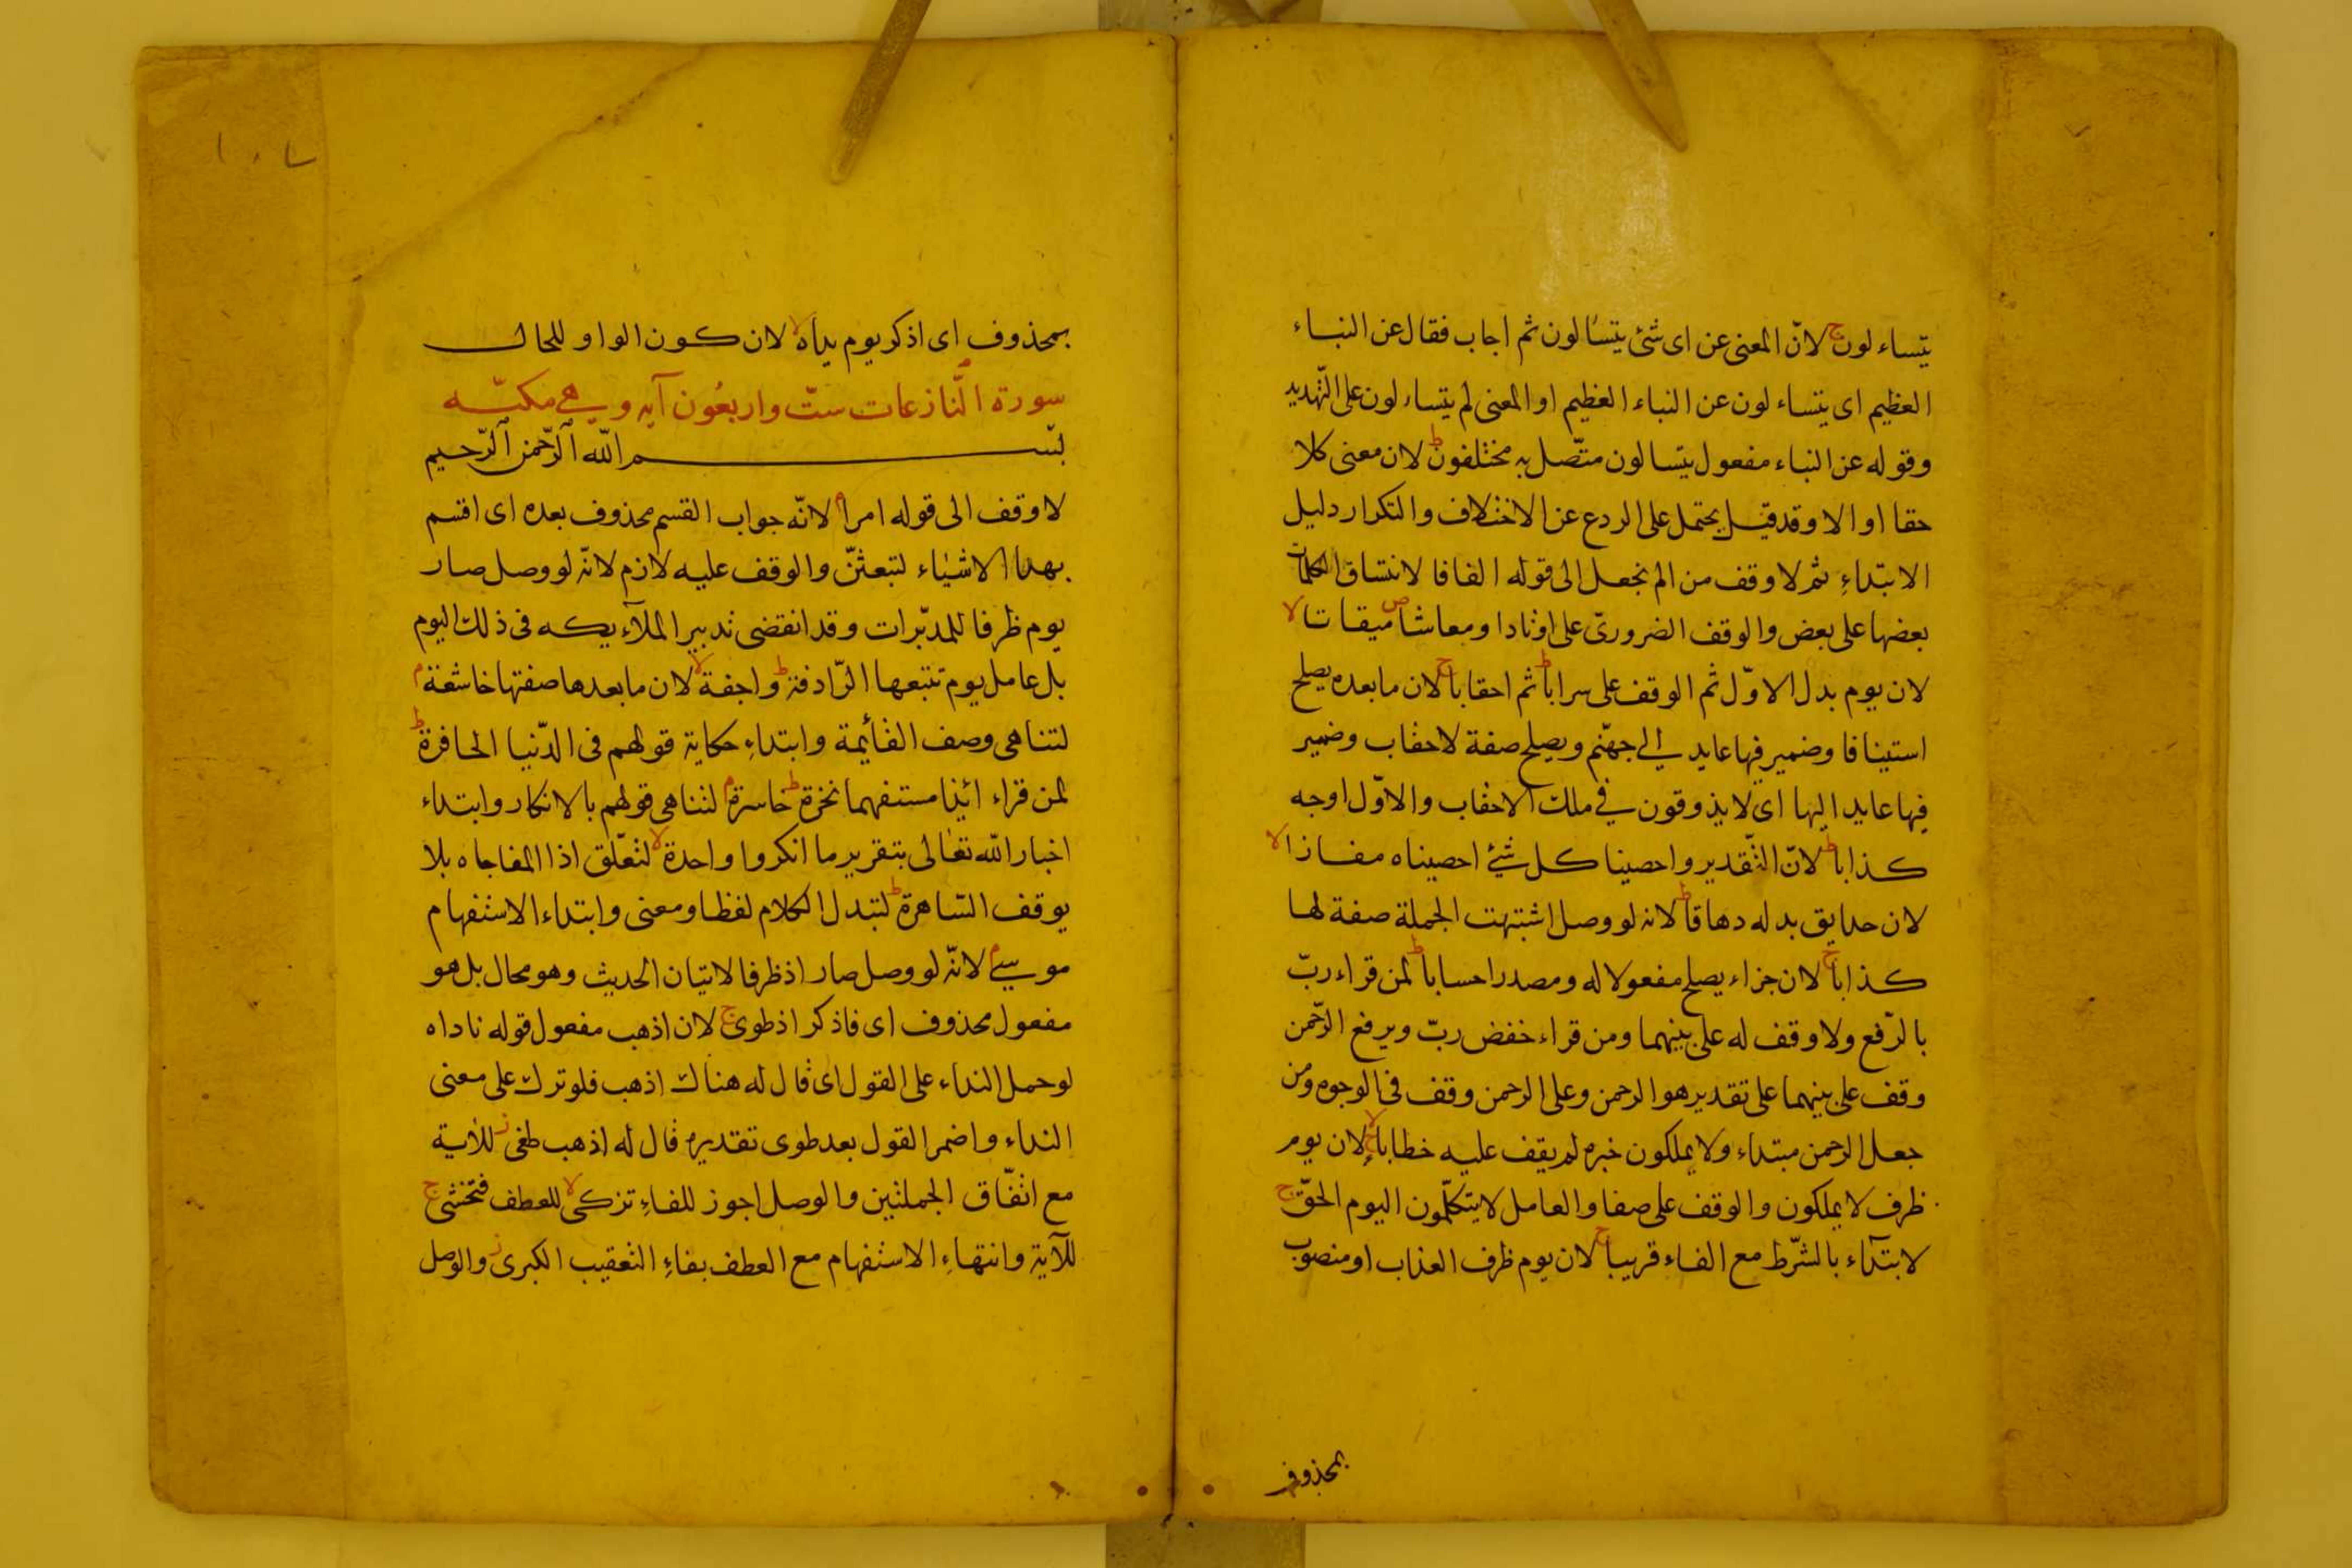 يتساءلون ج لانّ المعنى عن اى شئ يتسٔالون ثم اجاب فقال عن النباء
العظيم اى يتساءلون عن النباء العظيم او المعنى لم يتساءلون على التّهديد
وقوله عن النباء مفعول يتسالون متّصل به مختلفون ط لان معنى كلا
حقا او الا وقد قيل يحتمل على الردع عن الاختلاف والتكرار دليل
الابتداءِ ثم لا وقف من الم نجعل الى قوله الفافا لانتساق الكلمات
بعضها على بعض والوقف الضرورىّ على اوتادا ومعاشا ص ميقاتا لا
لان يوم بدل الاوّل ثم الوقف على سرابا ط ثم احقابا ج لان ما بعده يصلح
استينافا وضمير فيها عايد الى جهنّم ويصلح صفة لاحقاب وضمير
فيها عايد اليها اى لا يذوقون فى ملك الاحقاب والاوّل اوجه
كذابا ط لانّ التّقدير واحصينا كل شئ احصيناه مفازا لا
لان حدايق بدله دهاقا ط لانه لو وصل اشتبهت الجملة صفة لها
كذابا ج لان جزاء يصلح مفعولا له ومصدرا حسابا ط لمن قراء ربّ
بالرّفع ولا وقف له على بينهما ومن قراء خفض ربّ ويرفع الرّحمن
وقف على بينهما على تقدير هو الرحمن وعلى الرحمن وقف فى الوجوه ومن
جعل الرحمن مبتداء ولا يملكون خبره لم يقف عليه خطابا لا ج لان يوم
ظرف لا يملكون والوقف على صفا والعامل لا يتكلّمون اليوم الحقّ ج
لابتدآء بالشّرط مع الفاء قريبا ج لان يوم ظرف العذاب او منصوب
بمحذوف
بمحذوف اى اذكر يوم يداه لا لان كون الواو للحال
سورة النّازعات ستّ واربعُون آيه وهى مكيّه
بسم الله الرّحمن الرّحيم
لا وقف الى قوله امرا م لانّه جواب القسم محذوف بعده اى اقسم
بهدا الاشيٰاء لتبعثنّ والوقف عليه لازم لانّه لو وصل صار
يوم ظرفا للمدبّرات وقد انقضى تدبير الملآءيكه فى ذلك اليوم
بل عامل يوم تتبعها الرّادفة ط واجفة لا لان ما بعدها صفتها خاشعة م
لتناهى وصف القأيمة وابتداءِ حكاية قولهم فى الدّنيا الحافرة ط
لمن قراء ائذا مستفهما نخرة ط خاسرة م لتناهى قولهم بالانكار وابتداء
اخبار الله تعٰالى بتقرير ما انكروا واحدة لا لتعلّق اذا المفاجاه بلا
يوقف السّاهرة ط لتبدل الكلام لفظا ومعنى وابتداء الاستفهام
موسى م لانّه لو وصل صار اذ ظرفا لاتيان الحديث وهو محال بل هو
مفعول محذوف اى فاذكر اذ طوى ج لان اذهب مفعول قوله ناداه
لو حمل النداء على القول اى قال له هناك اذهب فلو ترك على معنى
النداء واضمر القول بعد طوى تقديره قال له اذهب طغى ز للاٰية
مع اتّفاق الجملتين والوصل اجوز للفاءِ تزكى لا للعطف فتخشى ج
للآية وانتهاءِ الاستفهام مع العطف بفاءِ التعقيب الكبرى ز والوصل